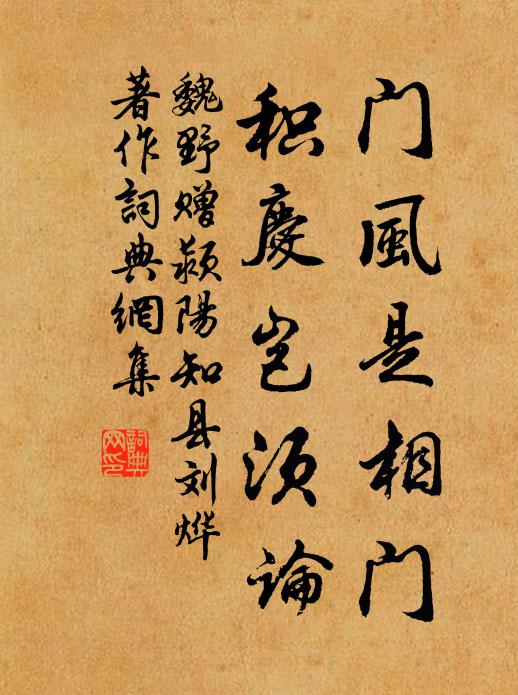 门風是相门
积慶岂须論
魏野赠颍陽知县刘烨
著作詞典網集
詞典網印